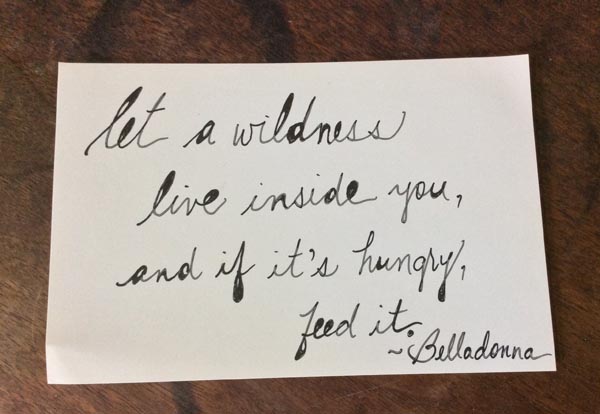 let a wildness
live inside you,
and if it's hungry,
feed it.
~Belladonna